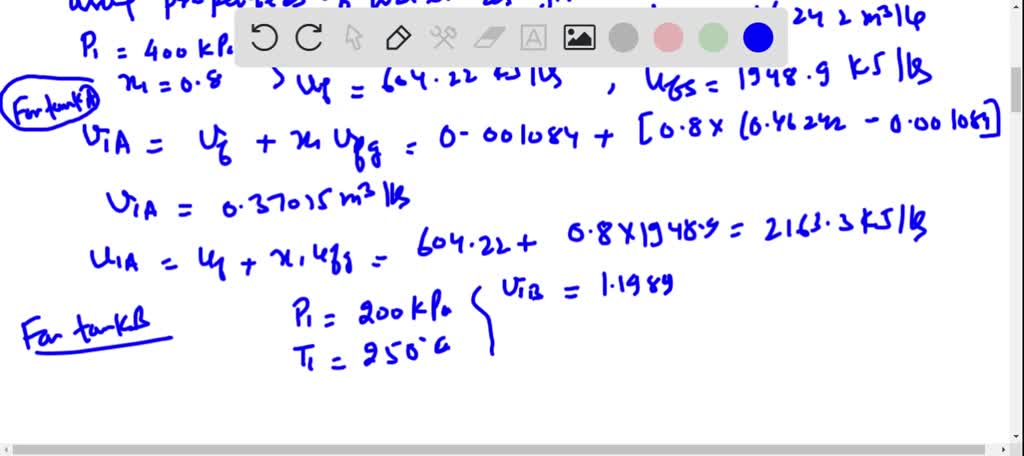 properties
242 m³/kg
P₁ = 400 kPa
x₁ = 0.8 } uf = 604.22 kJ/kg , ufg = 1948.9 kJ/kg
For tank A
V₁A = Vf + x₁ Vfg = 0.001084 + [0.8 × (0.46242 - 0.001084)]
V₁A = 0.37015 m³/kg
U₁A = uf + x₁ ufg = 604.22 + 0.8 × 1948.9 = 2163.3 kJ/kg
For tank B
P₁ = 200 kPa { V₁B = 1.1989
T₁ = 250°C
A